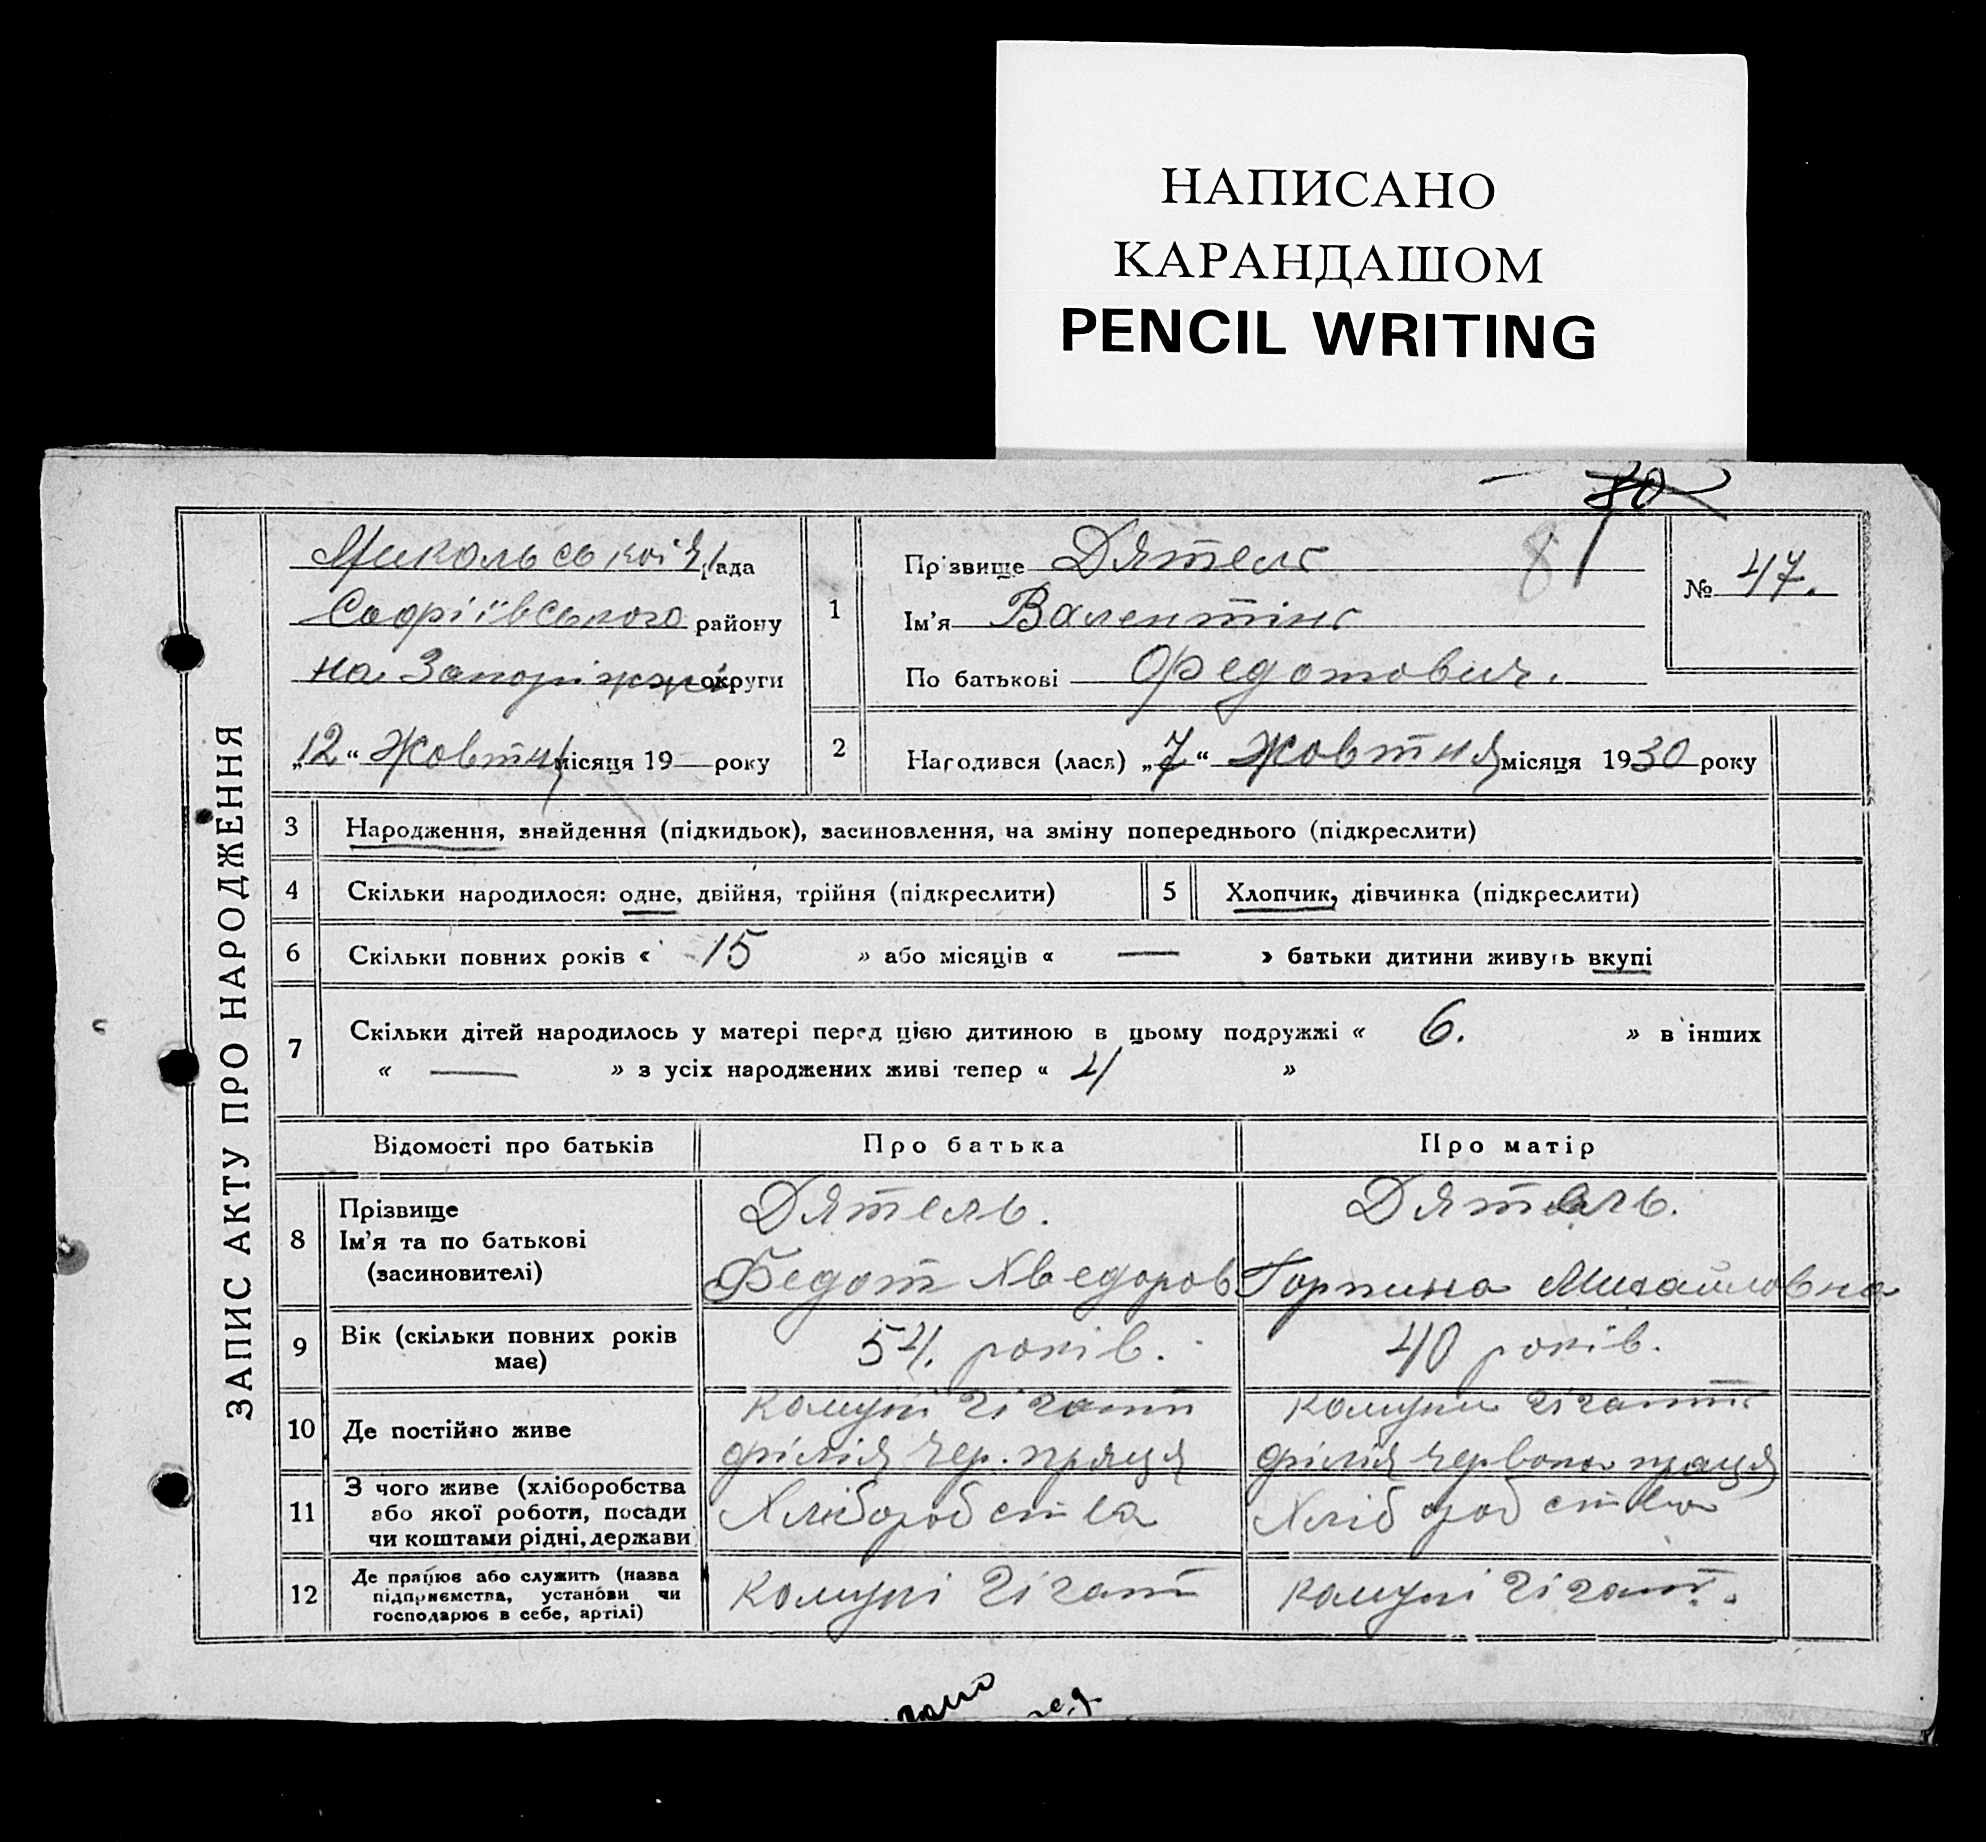 НАПИСАНО
КАРАНДАШОМ
PENCIL WRITING
70
ЗАПИС АКТУ ПРО НАРОДЖЕННЯ
Микольської рада
Софіївського району
на Запоріжжі округи
„12“ Жовтня місяця 19— року
1
Прізвище Дятель
Ім'я Валентін
По батькові Федотович.
81
№ 47.
2 Народився (лася) „7“ Жовтня місяця 1930 року
3 Народження, знайдення (підкидьок), засиновлення, на зміну попереднього (підкреслити)
4 Скільки народилося: одне, двійня, трійня (підкреслити) 5 Хлопчик, дівчинка (підкреслити)
6 Скільки повних років « 15 » або місяців « — » батьки дитини живуть вкупі
7 Скільки дітей народилось у матері перед цією дитиною в цьому подружжі « 6. » в інших
« — » з усіх народжених живі тепер « 4 »
Відомості про батьків Про батька Про матір
8 Прізвище
Ім'я та по батькові
(засиновителі)
Дятель.
Федот Хведоров
Дятель.
Горпина Михайловна
9 Вік (скільки повних років
має)
54. років.
40 років.
10 Де постійно живе
комуні Гігант
філія Чер. праця
комуни Гігант
філія Червона праця
11 З чого живе (хліборобства
або якої роботи, посади
чи коштами рідні, держави
Хліборобства
Хліборобства
12 Де працює або служить (назва
підприємства, установи чи
господарює в себе, артілі)
комуні Гігант
комуні Гігант.